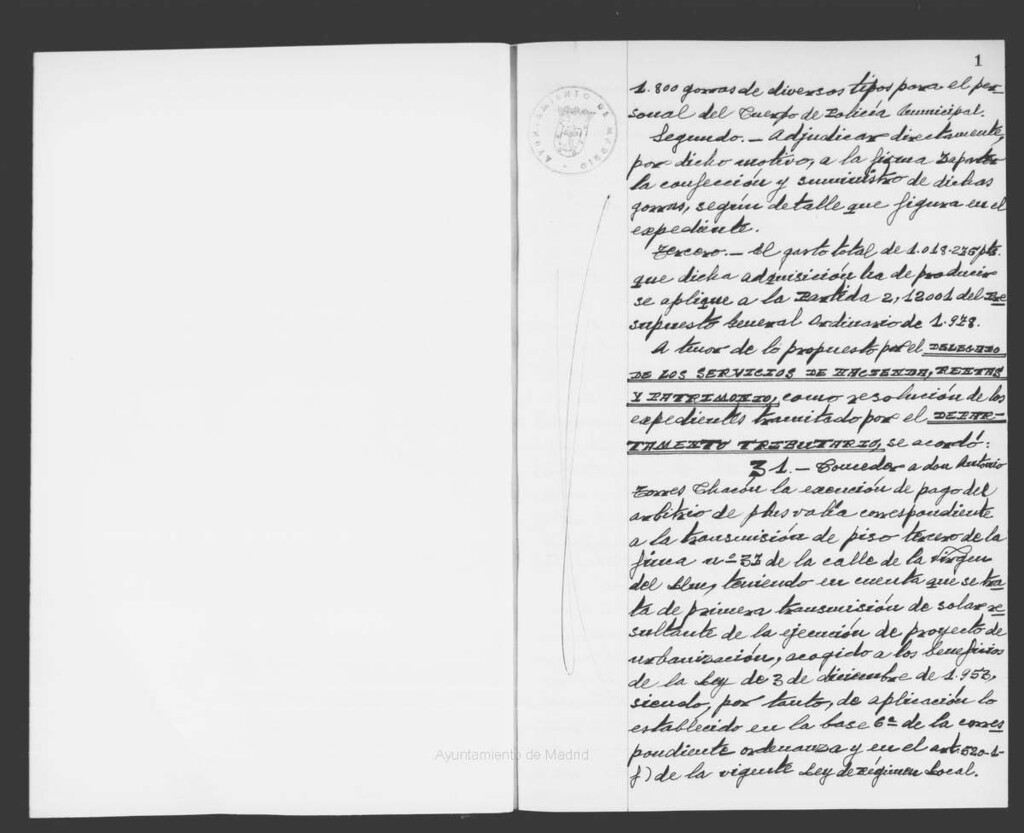 1
AYUNTAMIENTO DE MADRID
1.800 gorras de diversos tipos para el per
sonal del Cuerpo de Policía Municipal.
Segundo.- Adjudicar directamente,
por dicho motivo, a la firma Zapater
la confección y suministro de dichas
gorras, según detalle que figura en el
expediente.
Tercero.- El gasto total de 1.018.235 pts.
que dicha adquisición ha de producir
se aplique a la Partida 2,12001 del Pre
supuesto General Ordinario de 1.978.
A tenor de lo propuesto por el DELEGADO
DE LOS SERVICIOS DE HACIENDA, RENTAS
Y PATRIMONIO, como resolución de los
expedientes tramitado por el DEPAR-
TAMENTO TRIBUTARIO, se acordó:
31.- Conceder a don Antonio
Torres Chacón la exención de pago del
arbitrio de plus valía correspondiente
a la transmisión de piso tercero de la
finca nº 33 de la calle de la Virgen
del teniendo en cuenta que se tra
ta de primera transmisión de solar re
sultante de la ejecución de proyecto de
urbanización, acogido a los beneficios
de la Ley de 3 de diciembre de 1.953,
siendo, por tanto, de aplicación lo
establecido en la base 6ª de la corres
pondiente ordenanza y en el art. 520-1-
f) de la vigente Ley de Régimen Local.
Ayuntamiento de Madrid